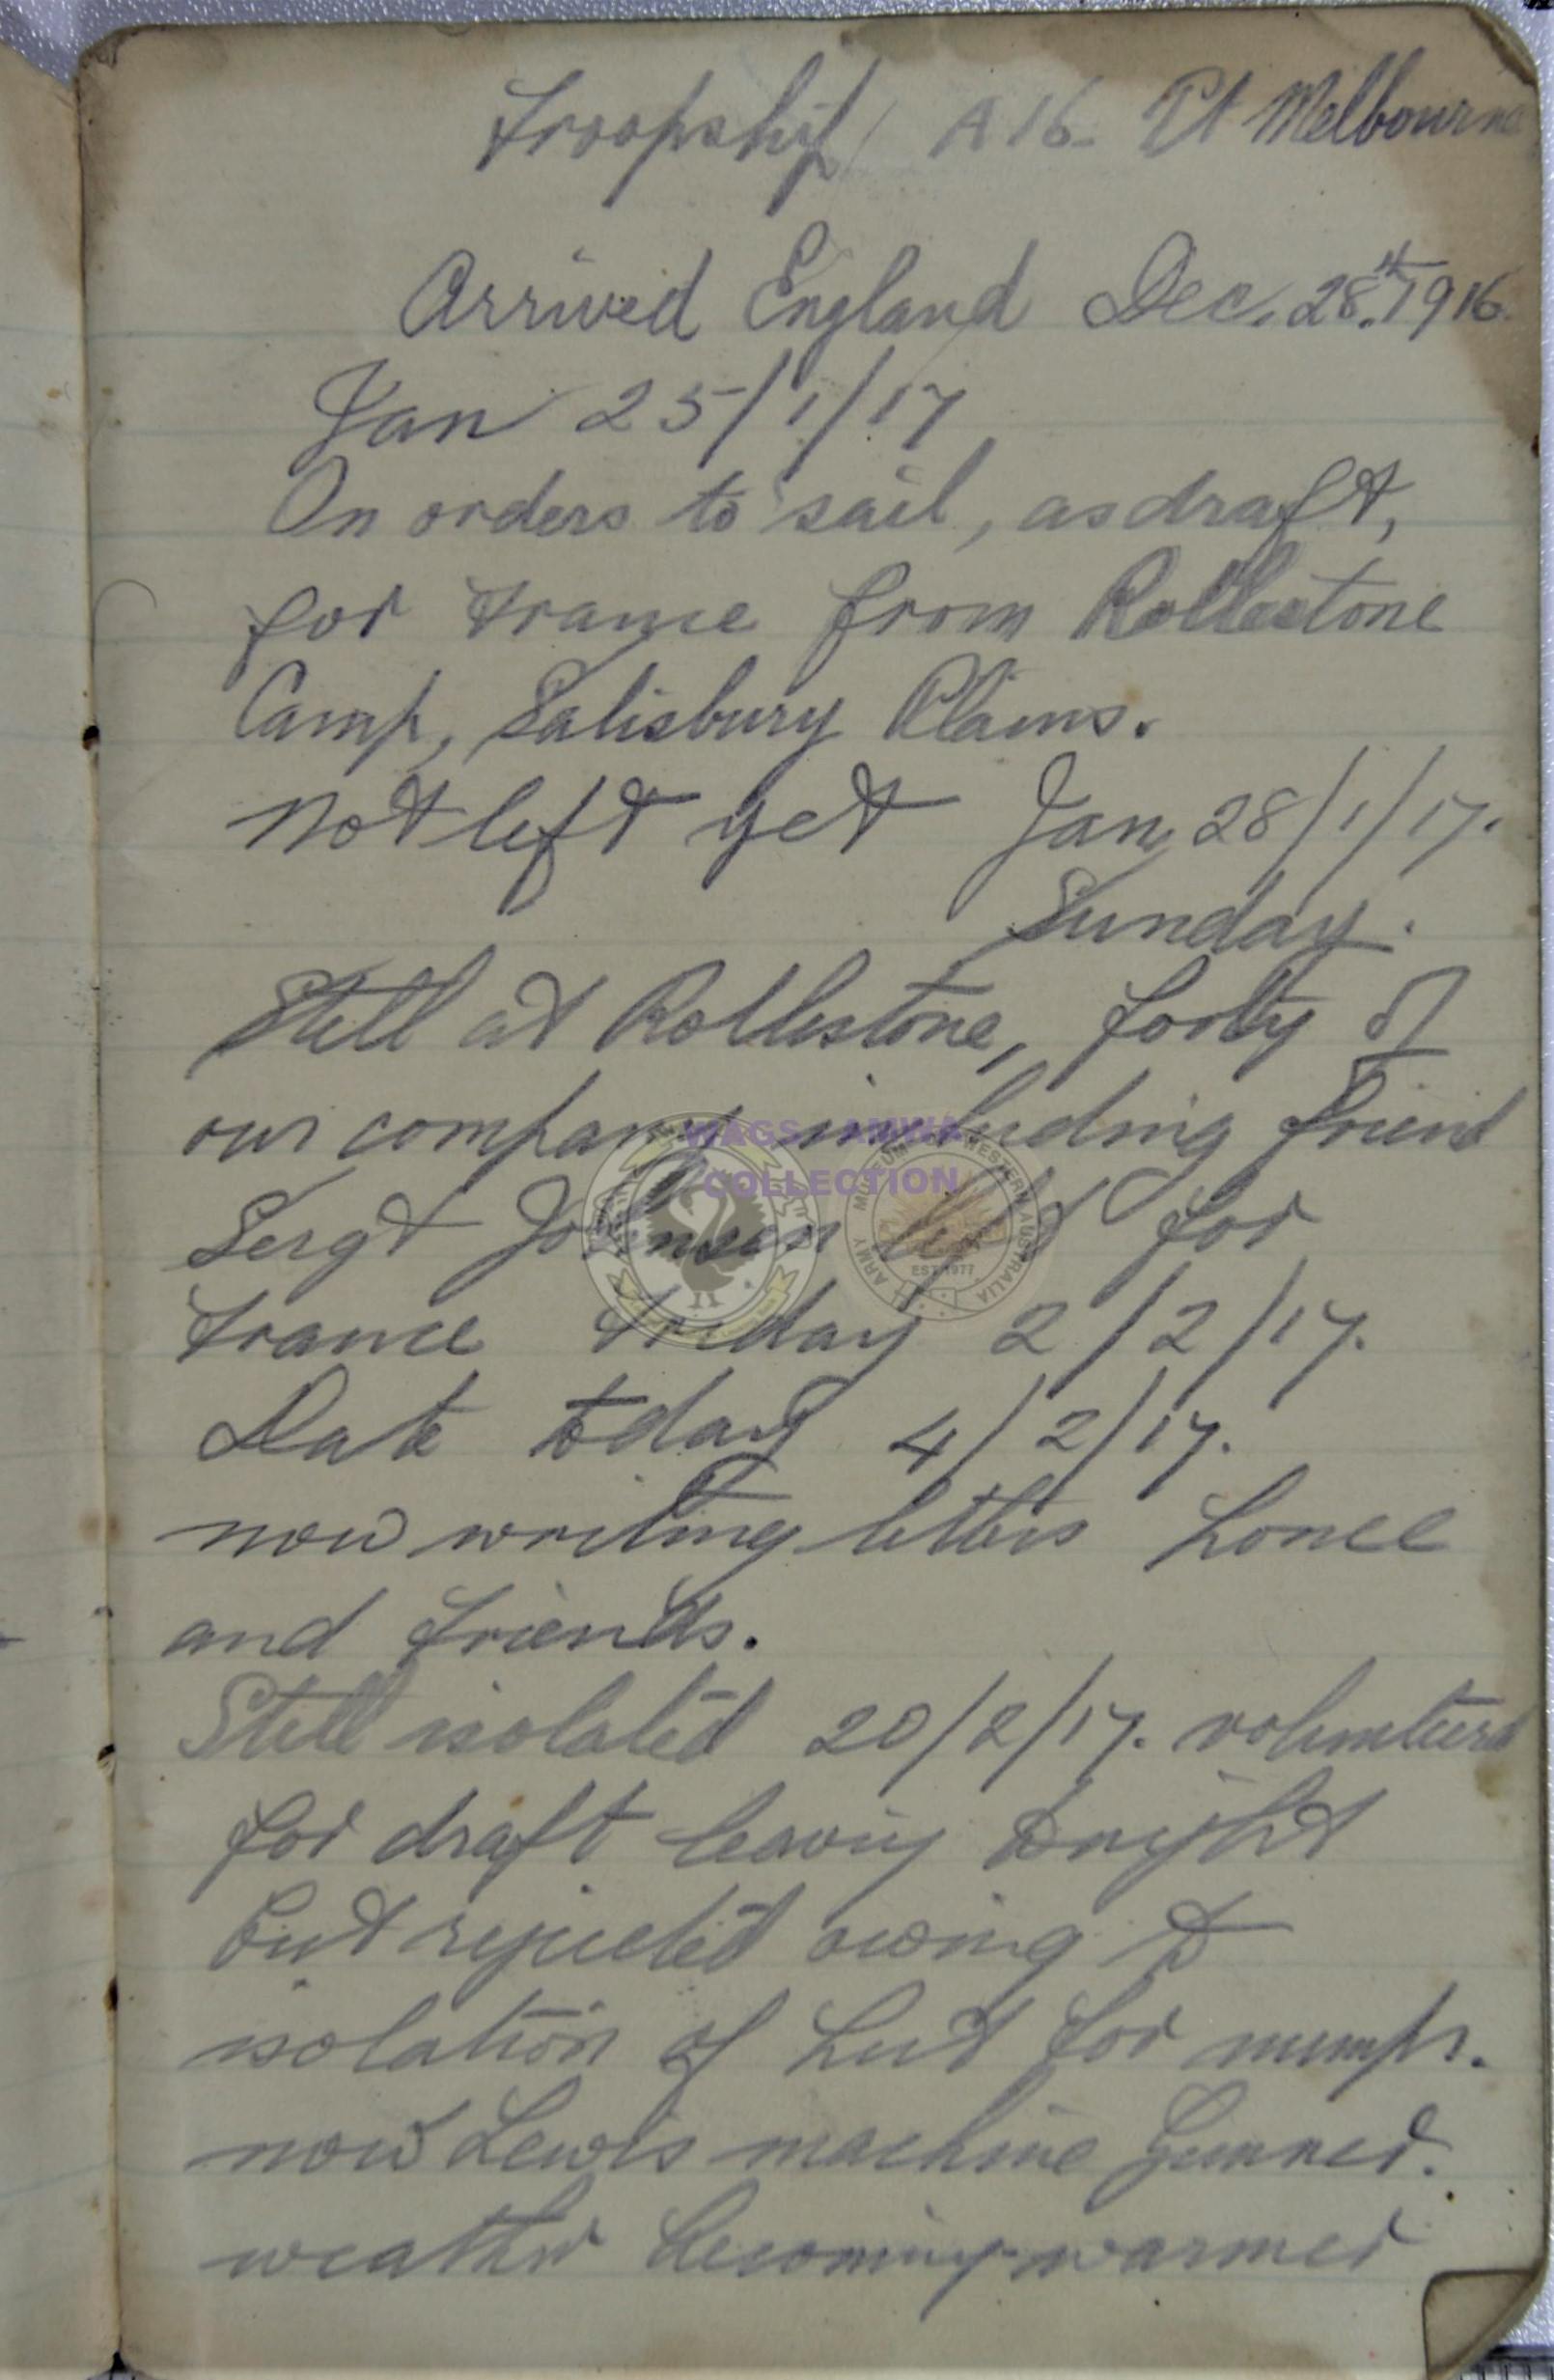 Troopship A16 Pt Melbourne
Arrived England Dec. 28th 1916.
Jan 25/1/17
On orders to sail, as draft,
for France from Rollestone
Camp, Salisbury Plains.
Not left yet Jan 28/1/17.
Sunday.
Still at Rollestone, forty of
our company including friend
Sergt Johnson left for
France Friday 2/2/17.
Date today 4/2/17.
now writing letters home
and friends.
Still isolated 20/2/17. volunteered
for draft leaving tonight
but rejected owing to
isolation of hut for mumps.
now Lewis machine Gunner.
weather becoming warmer
WAGS AMWA
COLLECTION
ARMY MUSEUM WESTERN AUSTRALIA
EST 1977